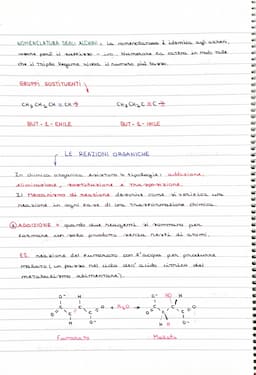 NOMENCLATURA DEGLI ALCHINI: La nomenclatura è identica agli alcheni,
anche però il suffisso è -ino. Numerare la catena in modo tale
che il triplo legame riceva il numero più basso.
GRUPPI SOSTITUENTI
CH₃ CH₂ CH = CH → CH₃ CH₂ C ≡ C →
BUT - 1 - ENILE BUT - 1 - INILE
LE REAZIONI ORGANICHE
In chimica organica esistono 4 tipologie: addizione,
eliminazione, sostituzione e trasposizione.
Il meccanismo di reazione descrive come si verifica una
reazione in ogni fase di una trasformazione chimica.
ADDIZIONE: quando due reagenti si sommano per
formare un solo prodotto senza resti di atomi.
ES. reazione del fumarato con l'acqua per produrre
malato (un passo nel ciclo dell'acido citrico del
metabolismo alimentare).
O⁻ H O⁻ HO H
C C + H₂O → C C
Fumarato Malato